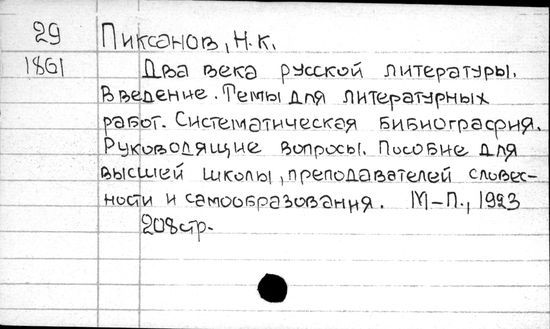 29 Пиксанов, Н.К.
1861 Два века русской литературы.
Введение. Темы для литературных
работ. Систематическая бибиография.
Руководящие вопросы. Пособие для
высшей школы, преподавателей словес-
ности и самообразования. М-П., 1923
208стр.